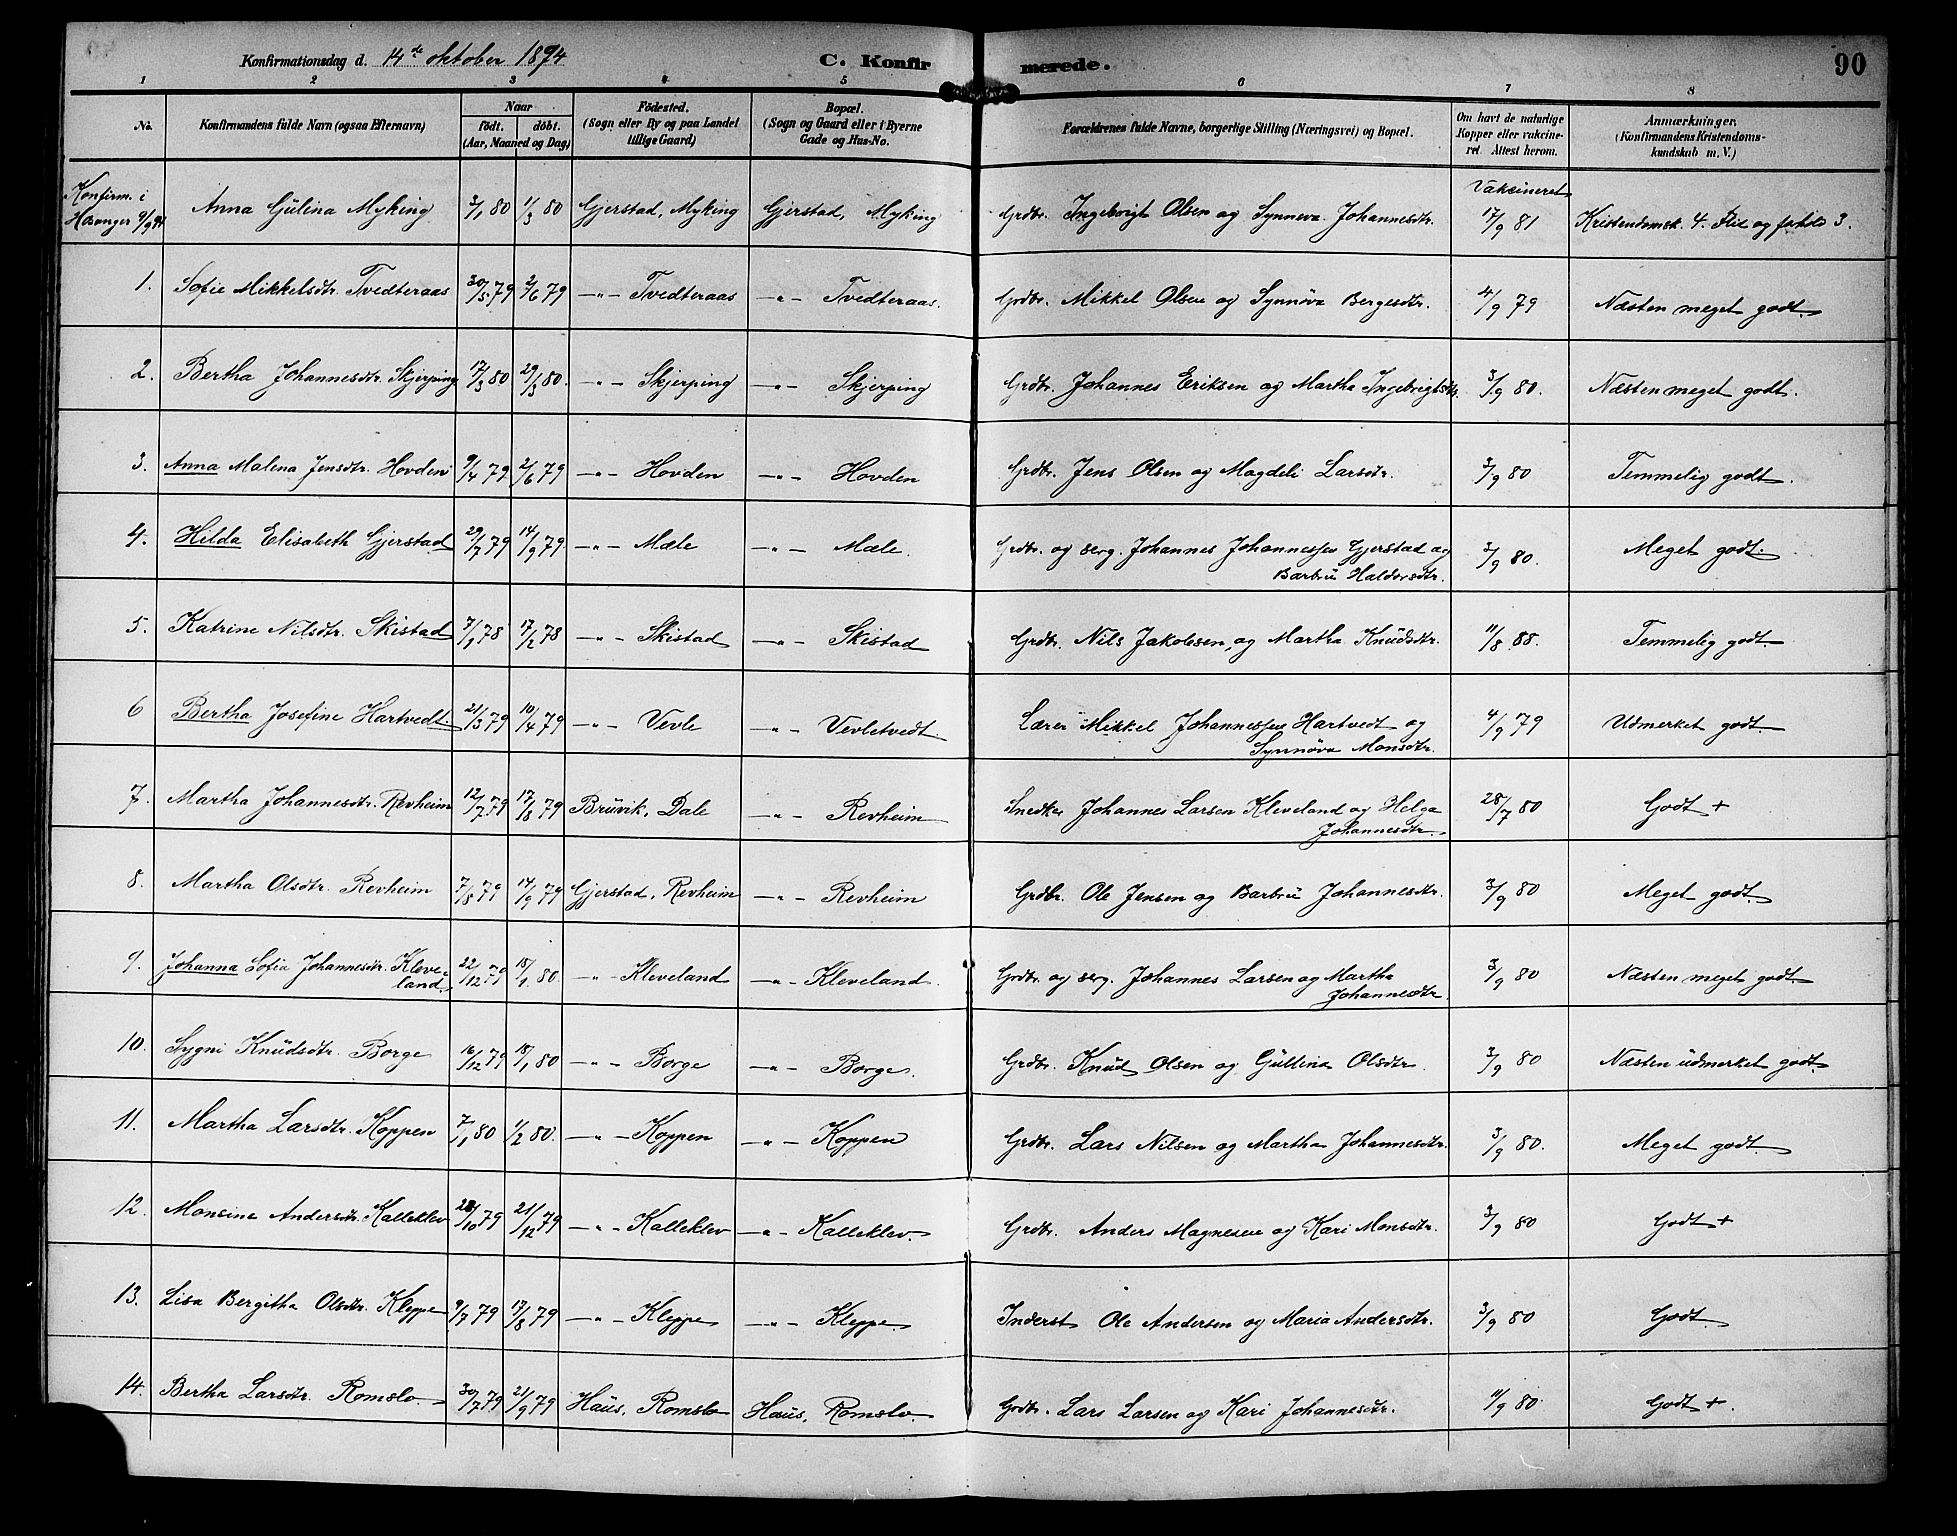 Konfirmationsdag d. 14de oktober 1894 C. Konfirmerede. 90
1 2 3 4 5 6 7 8
No. Konfirmandens fulde Navn (ogsaa Efternavn) Naar født. døbt. (Aar, Maaned og Dag) Fødested. (Sogn eller By og paa Landet tillige Gaard) Bopæl. (Sogn og Gaard eller i Byerne Gade og Hus-No. Forældrenes fulde Navne, borgerlige Stilling (Næringsvei) og Bopæl. Om havt de naturlige Kopper eller vakcineret. Attest herom. Anmærkninger. (Konfirmandens Kristendomskundskab m. V.)
Konfirm. i Hosanger 9/9 94 Anna Gülina Myking 3/1 80 1/3 80 Gjerstad, Myking Gjerstad, Myking Grdbr. Ingebrigt Olsen og Synneva Johannesdtr. Vakcineret 17/9 81 Kristendomsk. 4. Flid og forhold 3.
1. Sofie Mikkelsdtr. Tvedteraas 30/5 79 2/6 79 —"— Tvedteraas —"— Tvedteraas. Grdbr. Mikkel Olsen og Synnöva Bergesdtr. 4/9 79 Næsten meget godt.
2. Bertha Johannesdtr. Skjerping 17/3 80 29/3 80. —"— Skjerping —"— Skjerping Grdbr. Johannes Eriksen og Martha Ingebrigtsdtr. 3/9 80. Næsten meget godt.
3. Anna Malena Jensdtr. Hovden 9/4 79 2/6 79 —"— Hovden —"— Hovden Grdbr. Jens Olsen og Magdeli Larsdtr. 3/9 80 Temmelig godt.
4. Hilda Elisabeth Gjerstad 29/7 79 14/9 79 —"— Mæle —"— Mæle. Grdbr. og serg. Johannes Johannessen Gjerstad og
Barbrü Haldorsdtr. 3/9 80. Meget godt.
5. Katrine Nilsdtr. Skistad 7/1 78 17/2 78 —"— Skistad —"— Skistad Grdbr. Nils Jakobsen, og Martha Knüdsdtr. 11/8 88. Temmelig godt.
6 Bertha Josefine Hartvedt. 21/3 79 10/4 79 —"— Vevle —"— Vevletvedt. Lærer Mikkel Johannessen Hartvedt og
Synnöva Monsdtr. 4/9 79 Udmerket godt.
7. Martha Johannesdtr. Revheim 12/7 79 17/8 79 Brüvik, Dale —"— Revheim Snedker Johannes Larsen Kleveland og Helga
Johannesdtr. 28/7 80 Godt +
8. Martha Olsdtr. Revheim 7/8 79 14/9 79 Gjerstad, Revheim —"— Revheim Grdbr. Ole Jensen og Barbrü Johannesdtr. 3/9 80 Meget godt.
9. Johanna Sofia Johannesdtr. Kleve-
land. 22/12 79 18/1 80. —"— Kleveland —"— Kleveland. Grdbr. og serg. Johannes Larsen og Martha
Johannesdtr. 3/9 80 Næsten meget godt.
10. Sygni Knüdsdtr. Borge 16/12 79 18/1 80 —"— Borge —"— Borge. Grdbr. Knüd Olsen og Güllina Olsdtr. 3/9 80 Næsten üdmerket godt.
11. Martha Larsdtr. Koppen 7/1 80 1/2 80. —"— Koppen —"— Koppen Grdbr. Lars Nilsen og Martha Johannesdtr. 3/9 80. Meget godt.
12. Monsine Andersdtr. Kalleklev 28/10 79 21/12 79 —"— Kalleklev —"— Kalleklev. Grdbr. Anders Magnesen og Kari Monsdtr. 3/9 80 Godt +
13. Lisa Bergitha Olsdtr. Kleppe 9/7 79 17/8 79 —"— Kleppe —"— Kleppe. Inderst Ole Andersen og Maria Andersdtr. 3/9 80 Godt.
14. Bertha Larsdtr. Romslo 30/7 79 21/9 79 Haüs, Romslo Haüs, Romslo. Grdbr. Lars Larsen og Kari Johannesdtr. 11/9 80. Godt +.